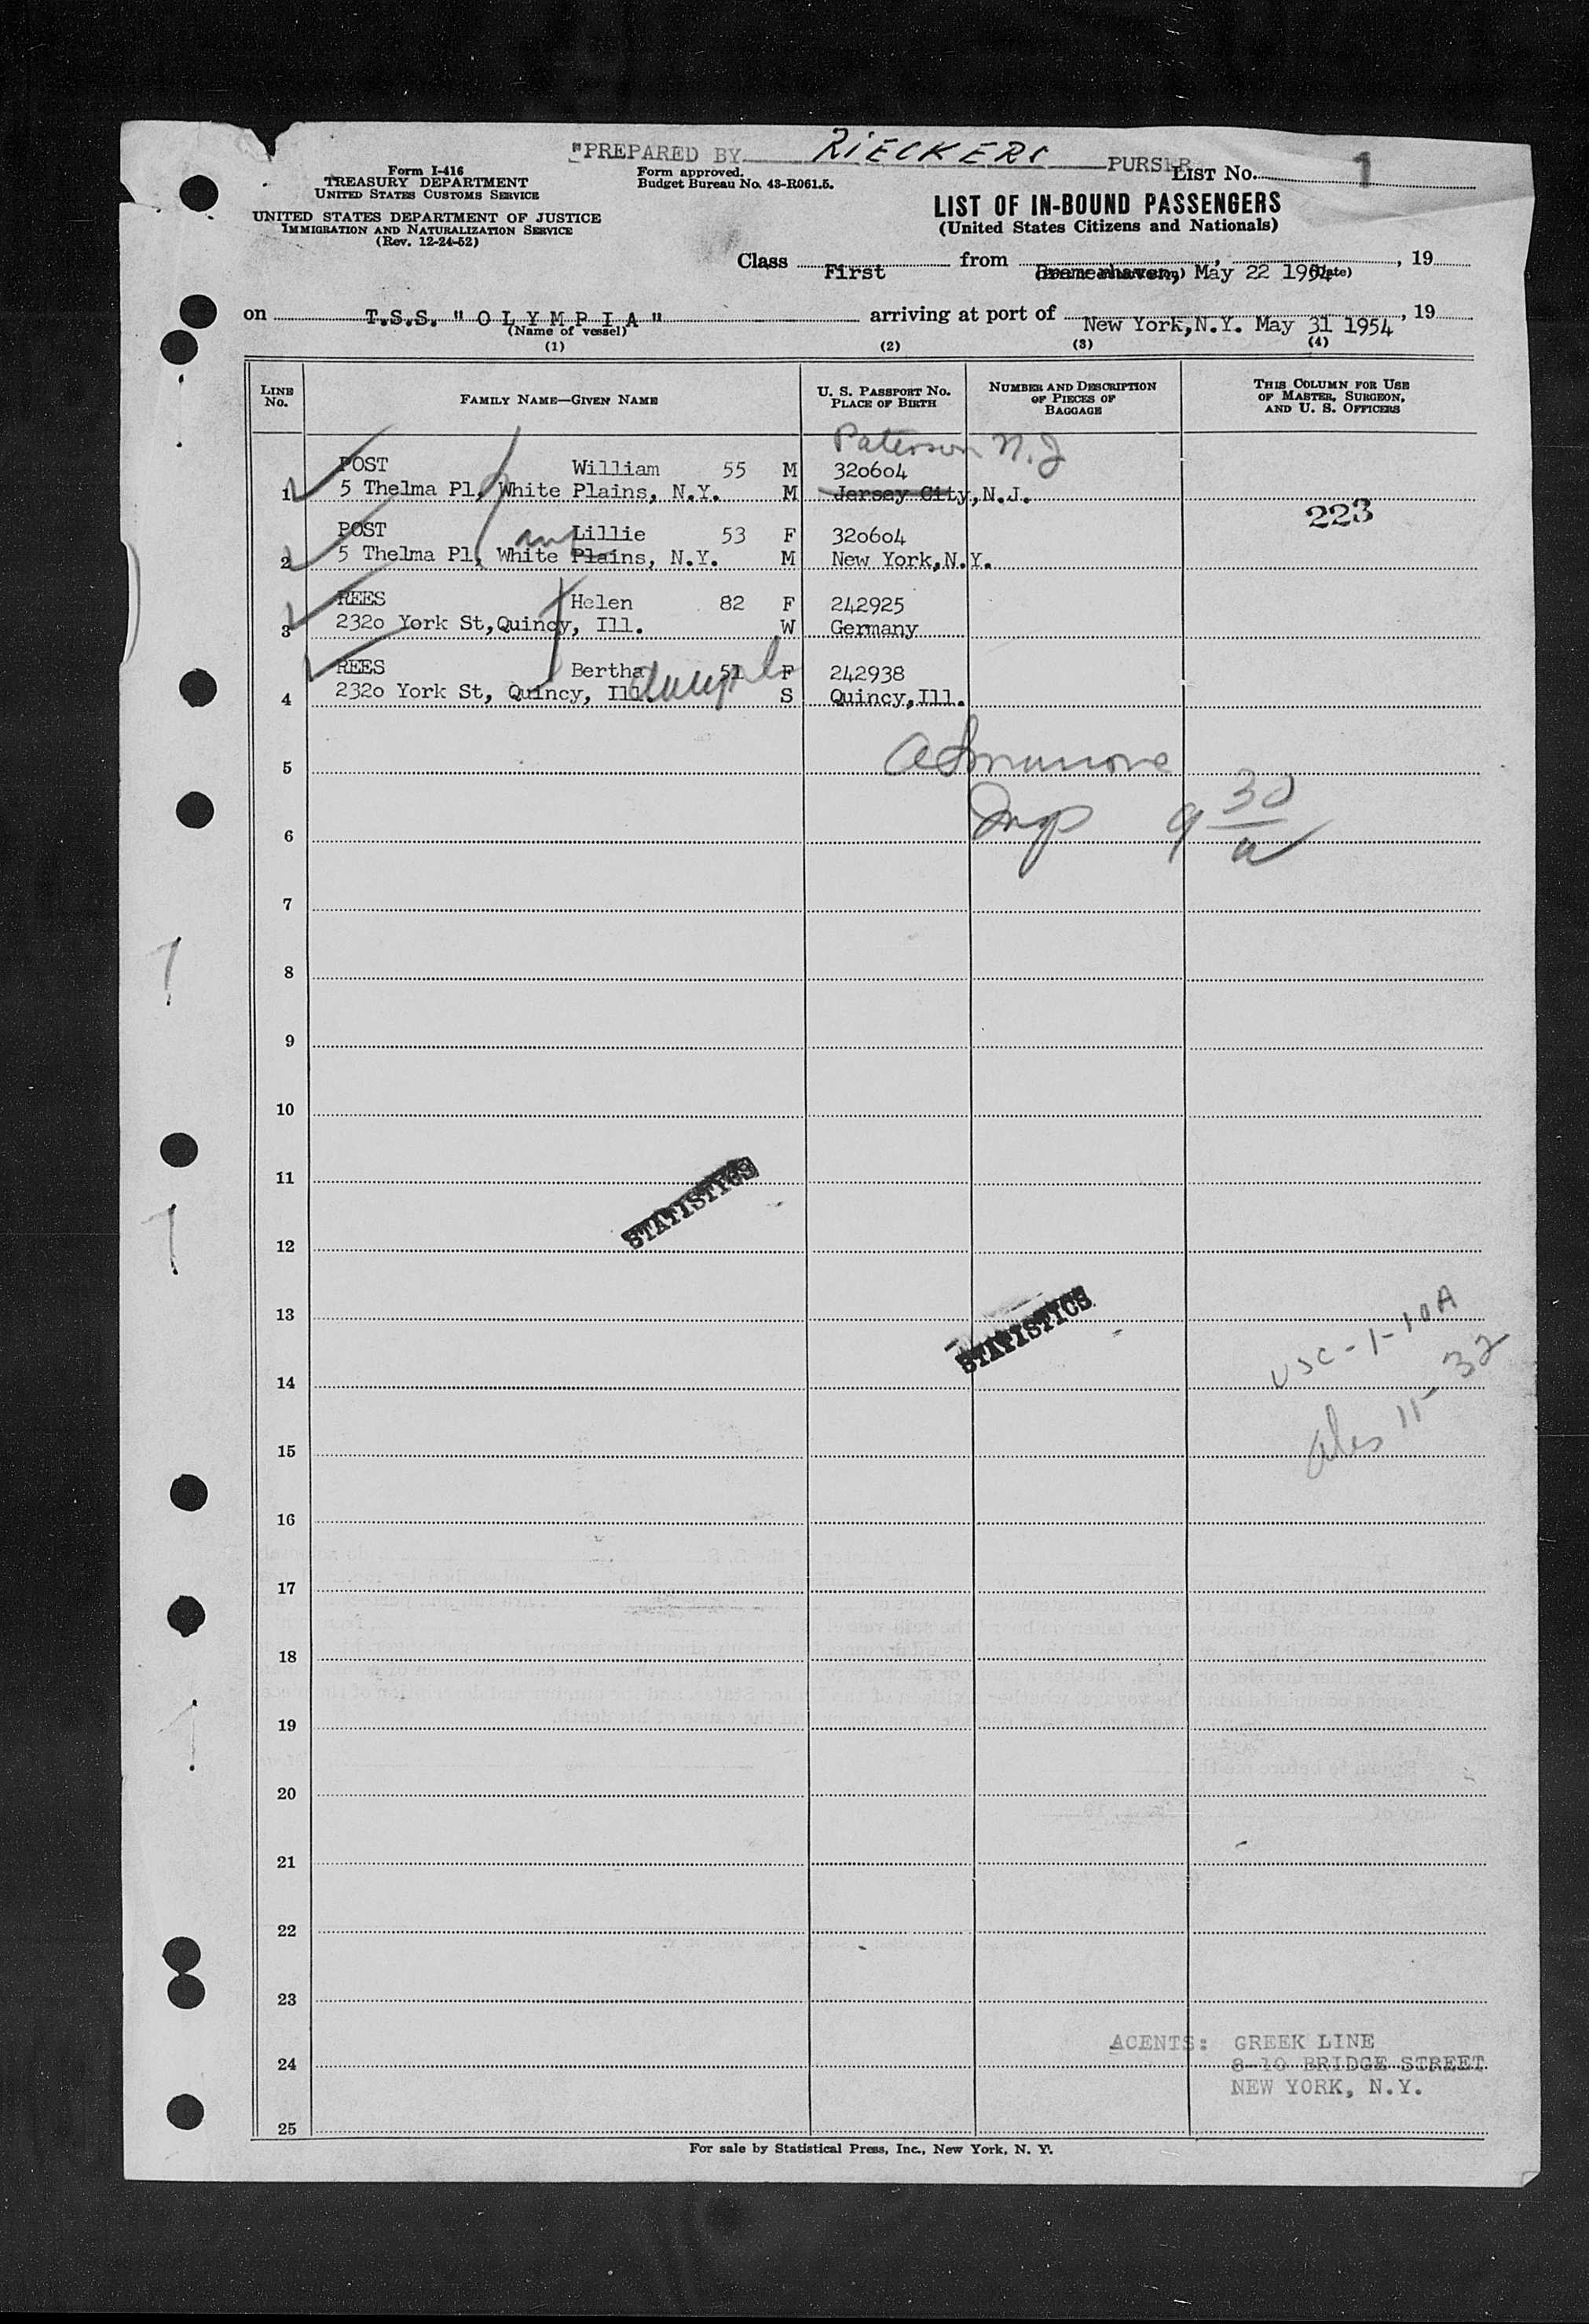 "PREPARED BY RIECKERS PURSER
Form I-416
TREASURY DEPARTMENT
UNITED STATES CUSTOMS SERVICE
Form approved.
Budget Bureau No. 43-R061.5.
LIST NO. 1
UNITED STATES DEPARTMENT OF JUSTICE
IMMIGRATION AND NATURALIZATION SERVICE
(Rev. 12-24-52)
LIST OF IN-BOUND PASSENGERS
(United States Citizens and Nationals)
Class First from Bremerhaven, May 22 1954 (Date), 19
on T.S.S. "OLYMPIA" arriving at port of New York,N.Y. May 31 1954, 19
(Name of vessel)
(1) (2) (3) (4)
LINE NO. FAMILY NAME—GIVEN NAME U. S. PASSPORT NO. PLACE OF BIRTH NUMBER AND DESCRIPTION OF PIECES OF BAGGAGE THIS COLUMN FOR USE OF MASTER, SURGEON, AND U. S. OFFICERS
Paterson N.J
POST William 55 M 320604
1 5 Thelma Pl, White Plains, N.Y. M Jersey City,N.J.
223
POST Lillie 53 F 320604
2 5 Thelma Pl, White Plains, N.Y. M New York,N.Y.
REES Helen 82 F 242925
3 2320 York St,Quincy, Ill. W Germany
REES Bertha 51 F 242938
4 2320 York St, Quincy, Ill. S Quincy,Ill.
5
6 9 30/a
7
8
9
10
11
STATISTICS
12
13
STATISTICS
USC-1-10A
14
32
15
16
17
18
19
20
21
22
23
AGENTS: GREEK LINE
24 8-10 BRIDGE STREET
NEW YORK, N.Y.
25
For sale by Statistical Press, Inc., New York, N. Y.